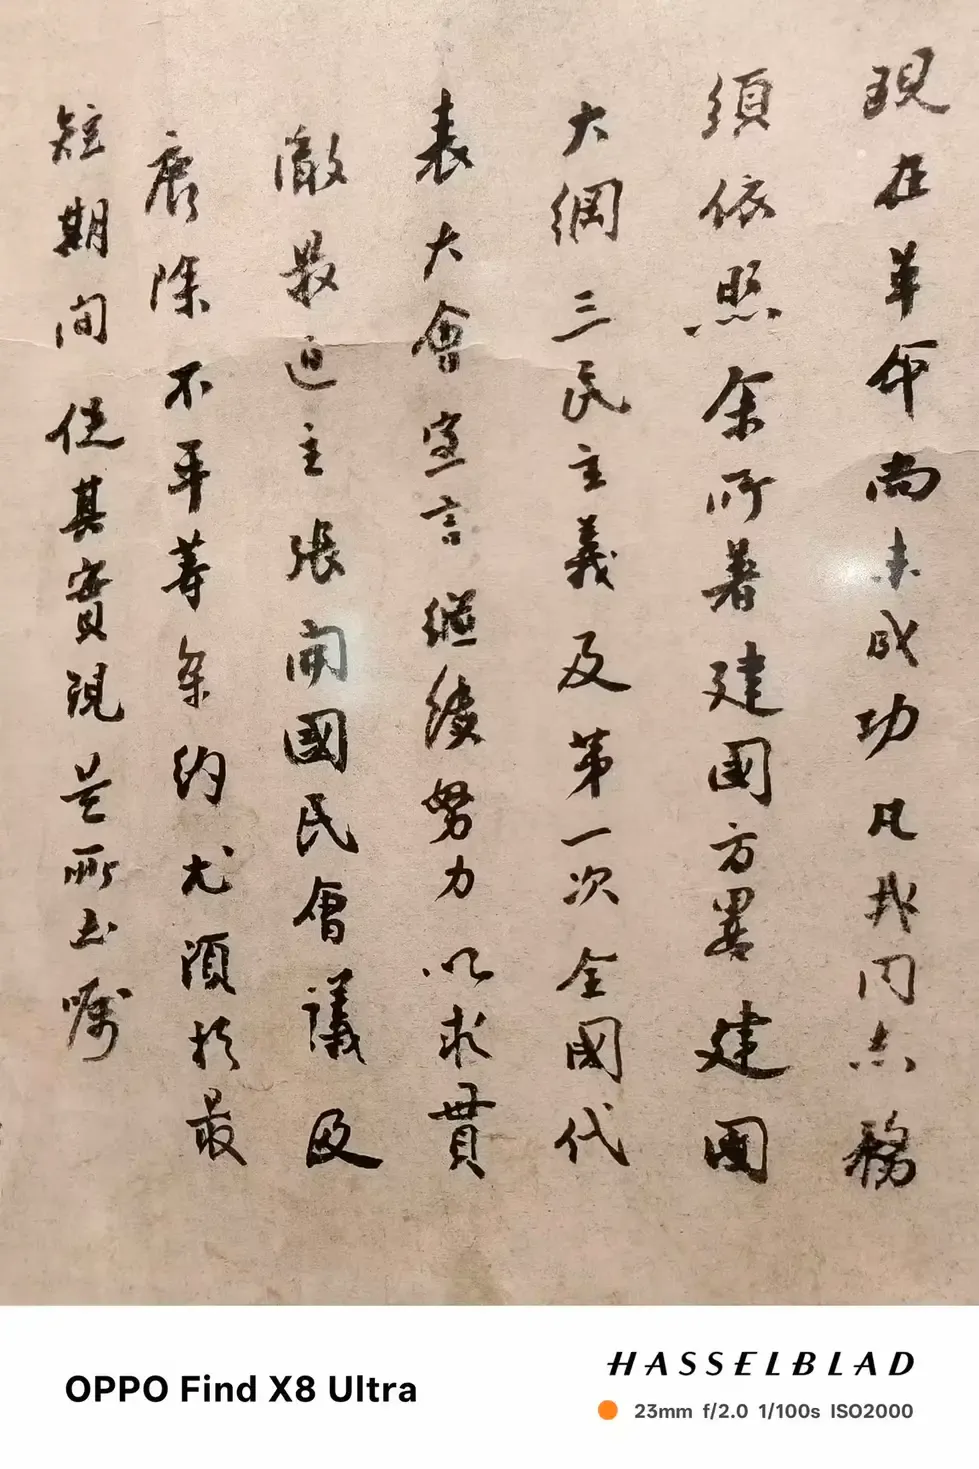 現在革命尚未成功凡我同志務
須依照余所著建國方畧建國
大綱三民主義及第一次全國代
表大會宣言繼續努力以求貫
徹最近主張開國民會議及
廢除不平等條約尤須於最
短期間促其實現是所至囑
OPPO Find X8 Ultra
HASSELBLAD
23mm f/2.0 1/100s ISO2000